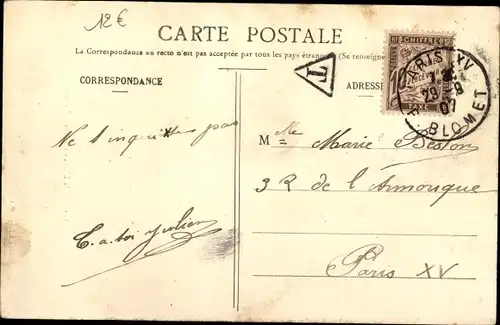 12€
CARTE POSTALE
La Correspondance au recto n'est pas acceptée par tous les pays étrangers (Se renseigne
CORRESPONDANCE
ADRESSE
T
CHIFFRE
10
TAXE
PARIS XV
29 - 9
07
BLOMET
Ne t'inquiette pas
T. a toi Julien
M lle Marie Beston
3 R de l'Armorique
Paris XV